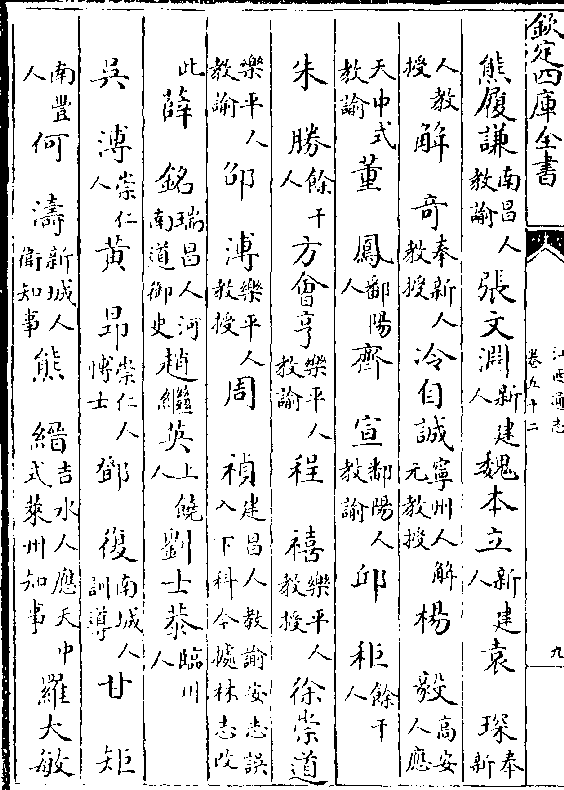 欽定四庫全書
江西通志
卷五十二
九
熊履謙南昌人教諭 張文淵新建人 魏本立新建人 袁琛奉新
人教授 解奇奉新人教授 冷自誠寧州人解元教授 楊毅高安人應
天中式教諭 董鳳鄱陽人 齊宣鄱陽人教諭 邱秬餘干人
朱勝餘干人 方會亨樂平人教諭 程禧樂平人教授 徐崇道
樂平人教諭 邵溥樂平人教授 周禎建昌人教諭安志誤入下科今據林志改
此 薛銘瑞昌人河南道御史 趙繼英上饒人 劉士恭臨川人
吳溥崇仁人 黃昂崇仁人博士 鄧復南城人訓導 甘矩
南豐人 何濤新城人衛知事 熊縉吉水人應天中式萊州知事 羅大敏